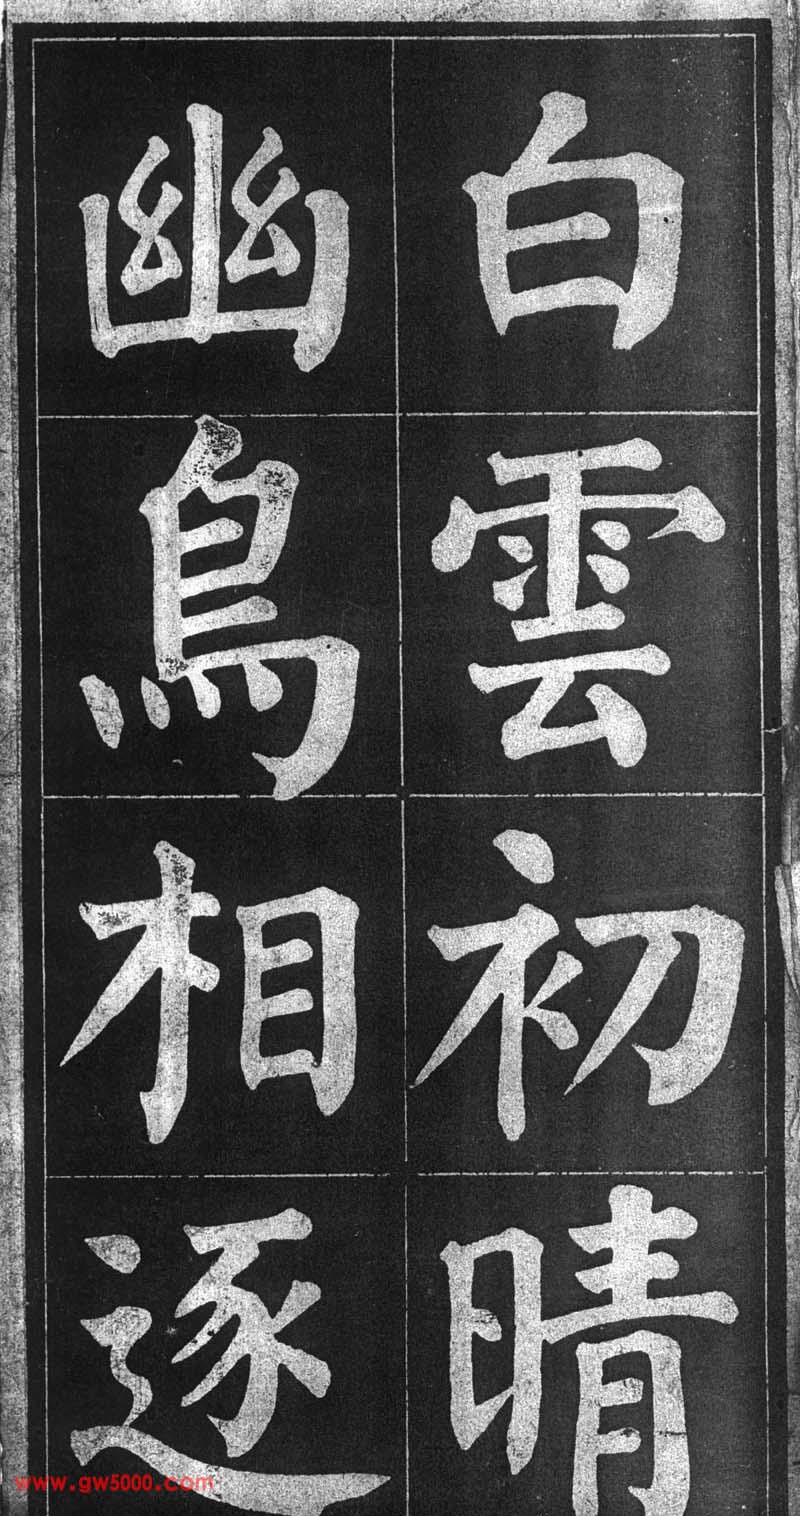 白雲初晴
幽鳥相逐
www.gw5000.com